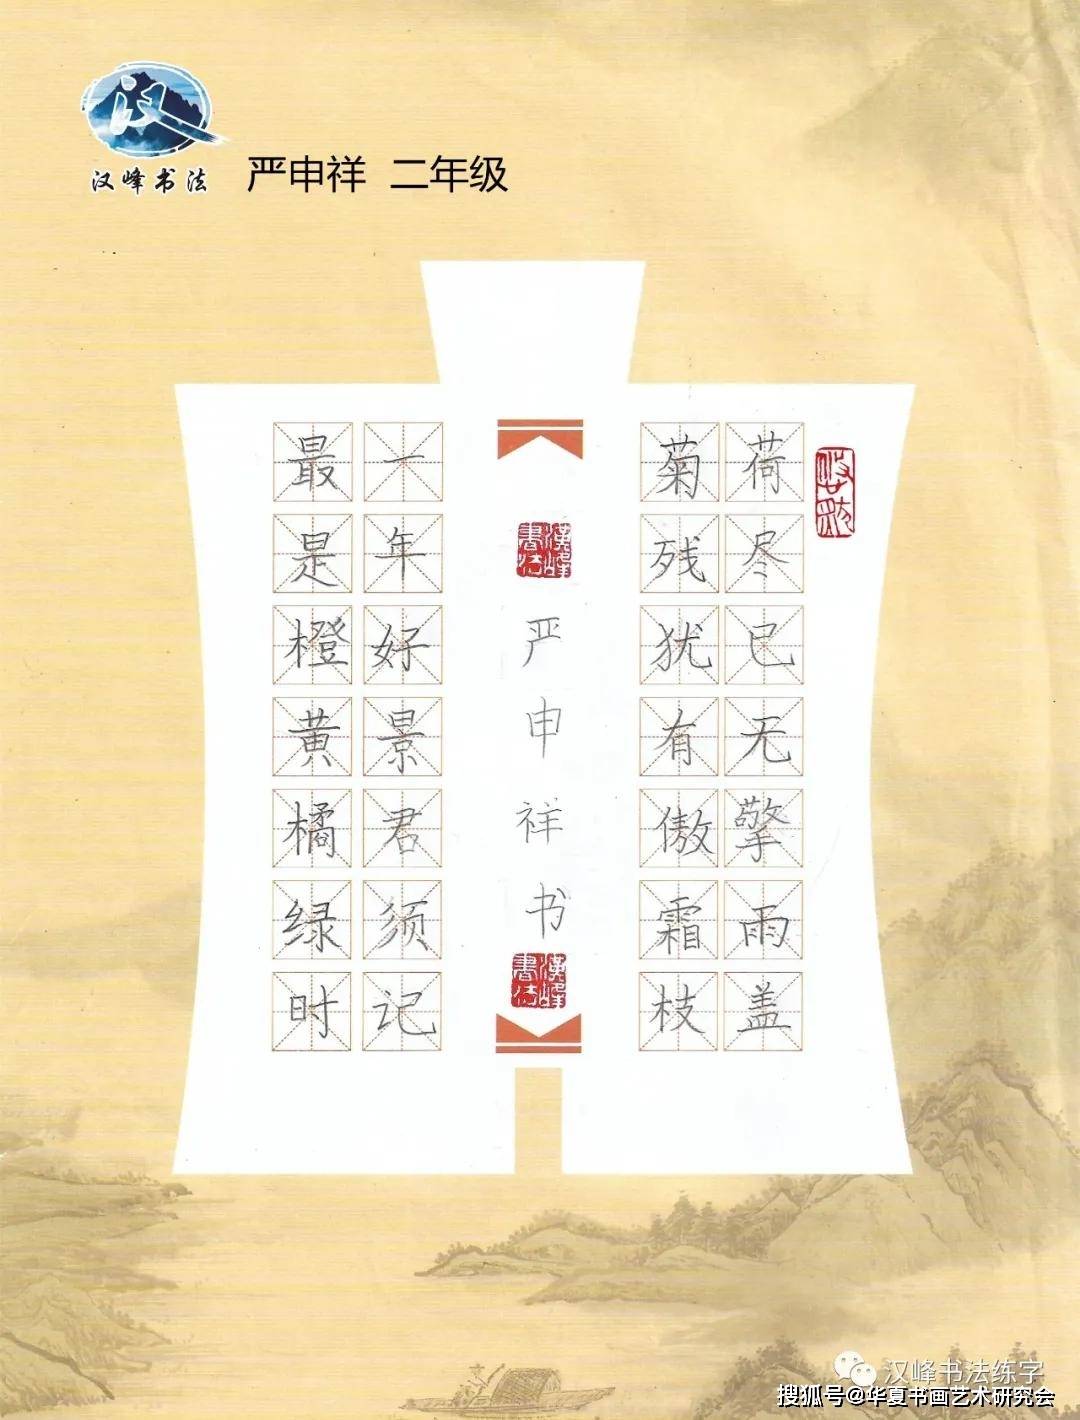 汉
汉峰书法
严申祥 二年级
荷尽已无擎雨盖
菊残犹有傲霜枝
漢峰書法
严申祥书
漢峰書法
一年好景君须记
最是橙黄橘绿时
汉峰书法练字
搜狐号@华夏书画艺术研究会